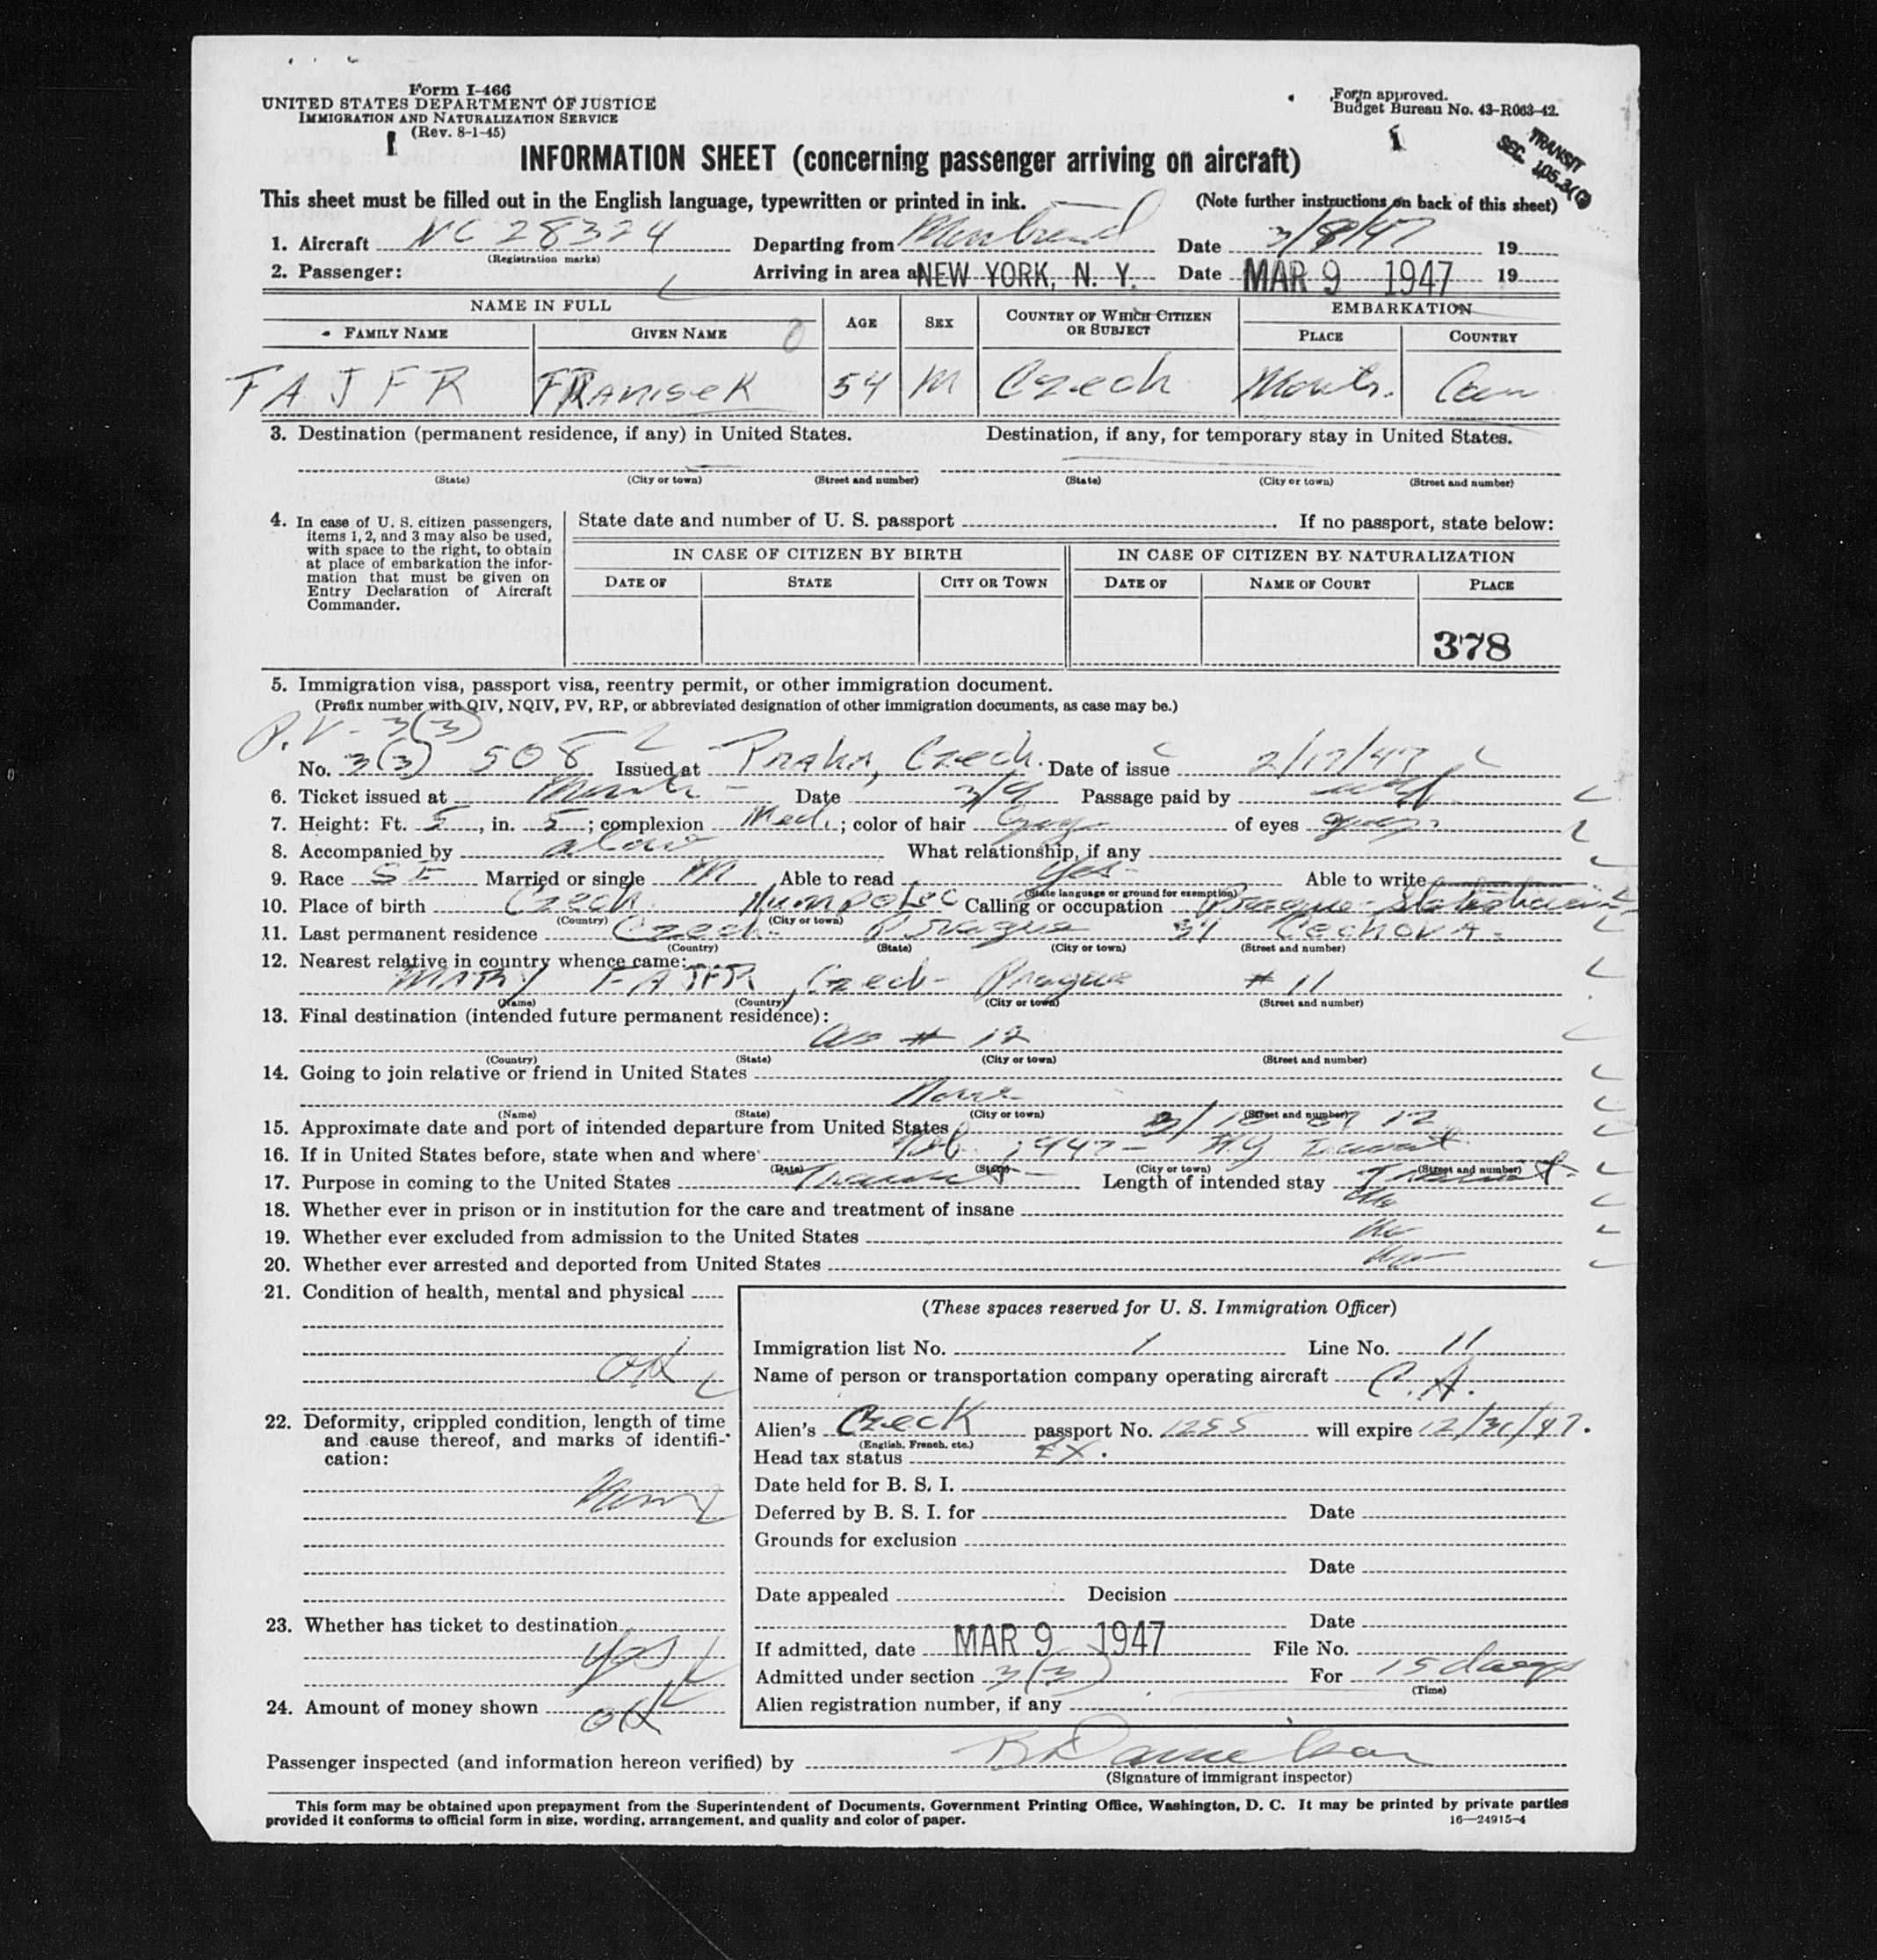 Form I-466
UNITED STATES DEPARTMENT OF JUSTICE
IMMIGRATION AND NATURALIZATION SERVICE
(Rev. 8-1-45)
Form approved.
Budget Bureau No. 43-R063-42.
TRANSIT
SEC. 105.3(
INFORMATION SHEET (concerning passenger arriving on aircraft)
This sheet must be filled out in the English language, typewritten or printed in ink. (Note further instructions on back of this sheet)
1. Aircraft NC 28324 Departing from Montreal Date 3/8/47 19
(Registration marks)
2. Passenger: Arriving in area at NEW YORK, N. Y. Date MAR 9 1947 19
NAME IN FULL AGE SEX COUNTRY OF WHICH CITIZEN OR SUBJECT EMBARKATION
FAMILY NAME GIVEN NAME PLACE COUNTRY
FAJFR FRANISEK 54 M Czech Montr. Can
3. Destination (permanent residence, if any) in United States. Destination, if any, for temporary stay in United States.
(State) (City or town) (Street and number) (State) (City or town) (Street and number)
4. In case of U. S. citizen passengers, items 1, 2, and 3 may also be used, with space to the right, to obtain at place of embarkation the information that must be given on Entry Declaration of Aircraft Commander.
State date and number of U. S. passport If no passport, state below:
IN CASE OF CITIZEN BY BIRTH IN CASE OF CITIZEN BY NATURALIZATION
DATE OF STATE CITY OR TOWN DATE OF NAME OF COURT PLACE
378
5. Immigration visa, passport visa, reentry permit, or other immigration document.
(Prefix number with QIV, NQIV, PV, RP, or abbreviated designation of other immigration documents, as case may be.)
P.V - 3(3)
No. 3(3) 508 Issued at Praha, Czech. Date of issue 2/17/47
6. Ticket issued at Montr - Date 3/9 Passage paid by
7. Height: Ft. 5, in. 5; complexion Med.; color of hair Gray of eyes gray
8. Accompanied by alone What relationship, if any
9. Race Married or single M Able to read Yes Able to write
(State language or ground for exemption)
10. Place of birth Czech. Humpolec Calling or occupation Prague - Statistician
(Country) (City or town)
11. Last permanent residence Czech. Prague 34 Cechova.
(Country) (State) (City or town) (Street and number)
12. Nearest relative in country whence came:
MARY FAJFR, Czech - Prague # 11
(Name) (Country) (City or town) (Street and number)
13. Final destination (intended future permanent residence):
as # 12
(Country) (State) (City or town) (Street and number)
14. Going to join relative or friend in United States
None
(Name) (State) (City or town) (Street and number)
15. Approximate date and port of intended departure from United States 3/10 or 12
16. If in United States before, state when and where Feb. 1947 - N.Y Transit
(Date) (State) (City or town) (Street and number)
17. Purpose in coming to the United States Transit - Length of intended stay Transit
18. Whether ever in prison or in institution for the care and treatment of insane No
19. Whether ever excluded from admission to the United States No
20. Whether ever arrested and deported from United States No
21. Condition of health, mental and physical
OK
22. Deformity, crippled condition, length of time and cause thereof, and marks of identification:
None
23. Whether has ticket to destination
Yes
24. Amount of money shown OK
(These spaces reserved for U. S. Immigration Officer)
Immigration list No. 1 Line No. 11
Name of person or transportation company operating aircraft C.A.
Alien's Czeck passport No. 1255 will expire 12/31/47.
(English, French, etc.)
Head tax status EX.
Date held for B. S. I.
Deferred by B. S. I. for Date
Grounds for exclusion
Date
Date appealed Decision
Date
If admitted, date MAR 9 1947 File No.
Admitted under section 3(3) For 15 days
(Time)
Alien registration number, if any
Passenger inspected (and information hereon verified) by
(Signature of immigrant inspector)
This form may be obtained upon prepayment from the Superintendent of Documents, Government Printing Office, Washington, D. C. It may be printed by private parties
provided it conforms to official form in size, wording, arrangement, and quality and color of paper. 16—24915-4